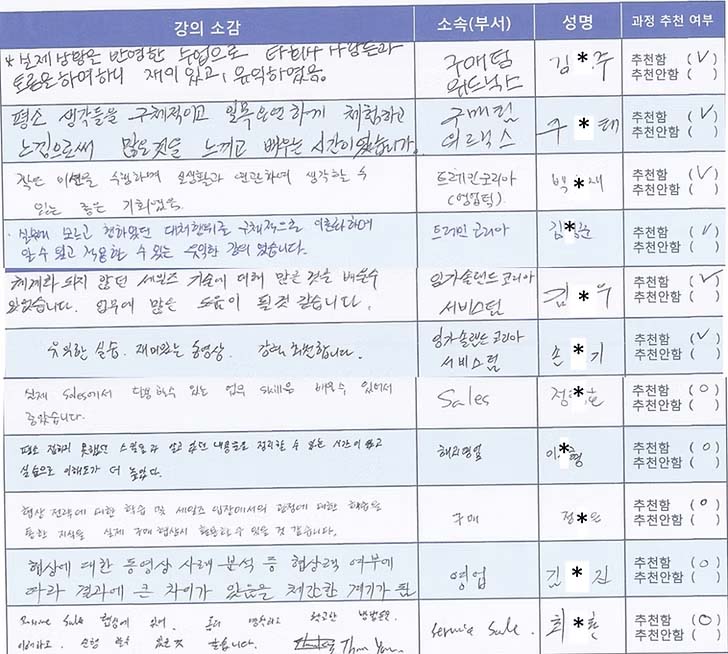 강의 소감 소속(부서) 성명 과정 추천 여부
* 실제 상황을 반영한 수업으로 타회사 사람들과 구매팀 김 * 주 추천함 (✓)
토론을 하여하니 재미있고, 유익하였음. 추천안함 ( )
평소 생각들을 구체적이고 일목요연하게 체험하고 구매팀 주 * 태 추천함 (✓)
느낌으로써 많은것을 느끼고 배우는 시간이었습니다. 추천안함 ( )
작은 미션을 수행하며 실생활과 연관하여 생각할 수 트레인코리아 박 * 추천함 (✓)
있는 좋은 기회였음. (영업팀) 추천안함 ( )
모르고 행하였던 구체적으로 트레인 코리아 김 * 추천함 (✓)
알 수 있고 적용할 수 있는 유익한 강의 였습니다. 추천안함 ( )
체계화 되지 않던 세일즈 기술에 대해 많은 것을 배울수 잉가솔랜드코리아 김 * 우 추천함 (✓)
있었습니다. 업무에 많은 도움이 될것 같습니다. 서비스팀 추천안함 ( )
유익한 실습. 재미있는 동영상. 강력 추천합니다. 잉가솔랜드코리아 손 * 기 추천함 (✓)
서비스팀 추천안함 ( )
실제 Sales에서 사용할수 있는 업무 skill을 배울수 있어서 Sales 정 * 추천함 (O)
좋았습니다. 추천안함 ( )
평소 접하지 못했던 알고 있던 내용들을 정리할 수 있는 시간이 됐고 해외영업 이 * 형 추천함 (O)
실습으로 이해도가 더 높았다. 추천안함 ( )
협상 전략에 대한 학습 및 세일즈 입장에서의 관점에 대한 학습을 구매 정 * 은 추천함 (O)
통한 지식을 실제 구매 협상시 활용할 수 있을 것 같습니다. 추천안함 ( )
협상에 대한 동영상 사례 분석 중 협상고객 여부에 영업 김 * 진 추천함 (O)
따라 결과에 큰 차이가 있음을 체감한 계기가 됨 추천안함 ( )
Sale 협상에 있어, 좀더 방법을 service Sale. 최 * 훈 추천함 (O)
좋습니다. Thank You. 추천안함 ( )